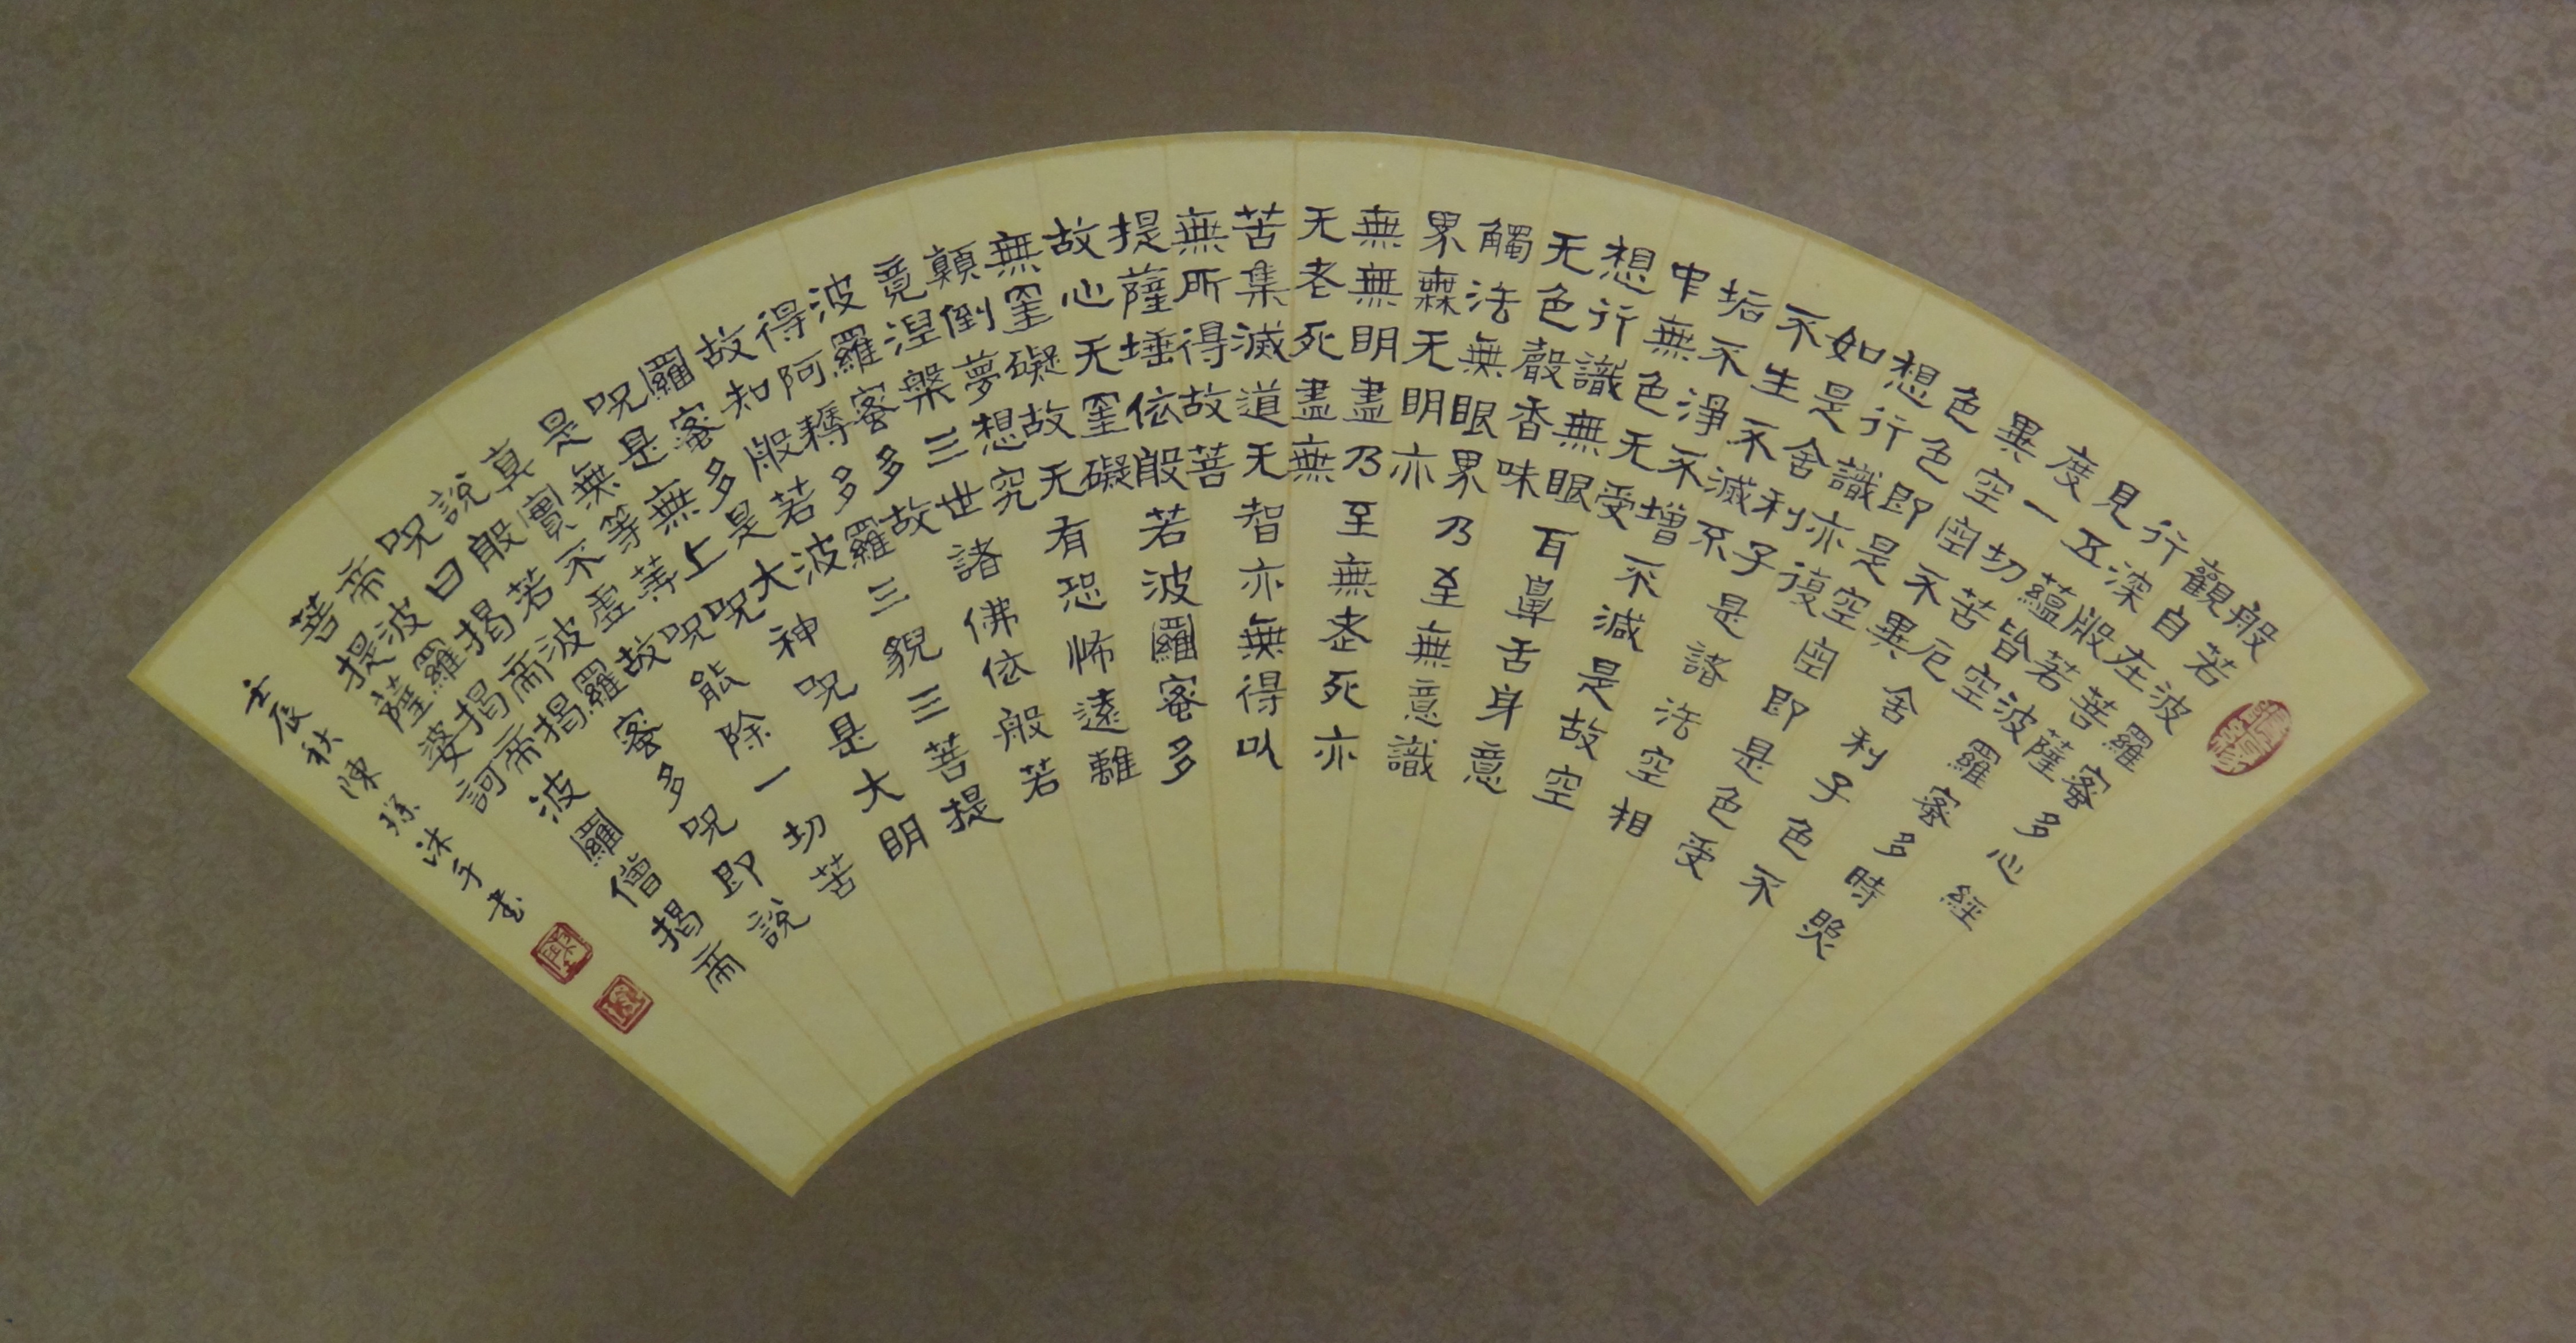 般若波羅蜜多心經
觀自在菩薩
行深般若波羅蜜多時照
見五蘊皆空
度一切苦厄舍利子色不
異空空不異
色色即是空空即是色受
想行識亦復
如是舍利子是諸法空相
不生不滅不
垢不淨不增不減是故空
中無色无受
想行識無眼耳鼻舌身意
无色聲香味
觸法無眼界乃至無意識
界無无明亦
無無明盡乃至無老死亦
无老死盡無
苦集滅道无智亦無得以
無所得故菩
提薩埵依般若波羅蜜多
故心无罣礙
無罣礙故无有恐怖遠離
顛倒夢想究
竟涅槃三世諸佛依般若
波羅蜜多故
得阿耨多羅三藐三菩提
故知般若波
羅蜜多是大神呪是大明
呪是無上呪
是無等等呪能除一切苦
真實不虛故
說般若波羅蜜多呪即說
呪曰揭帝揭
帝波羅揭帝波羅僧揭帝
菩提薩婆訶
壬辰秋陳沐手書